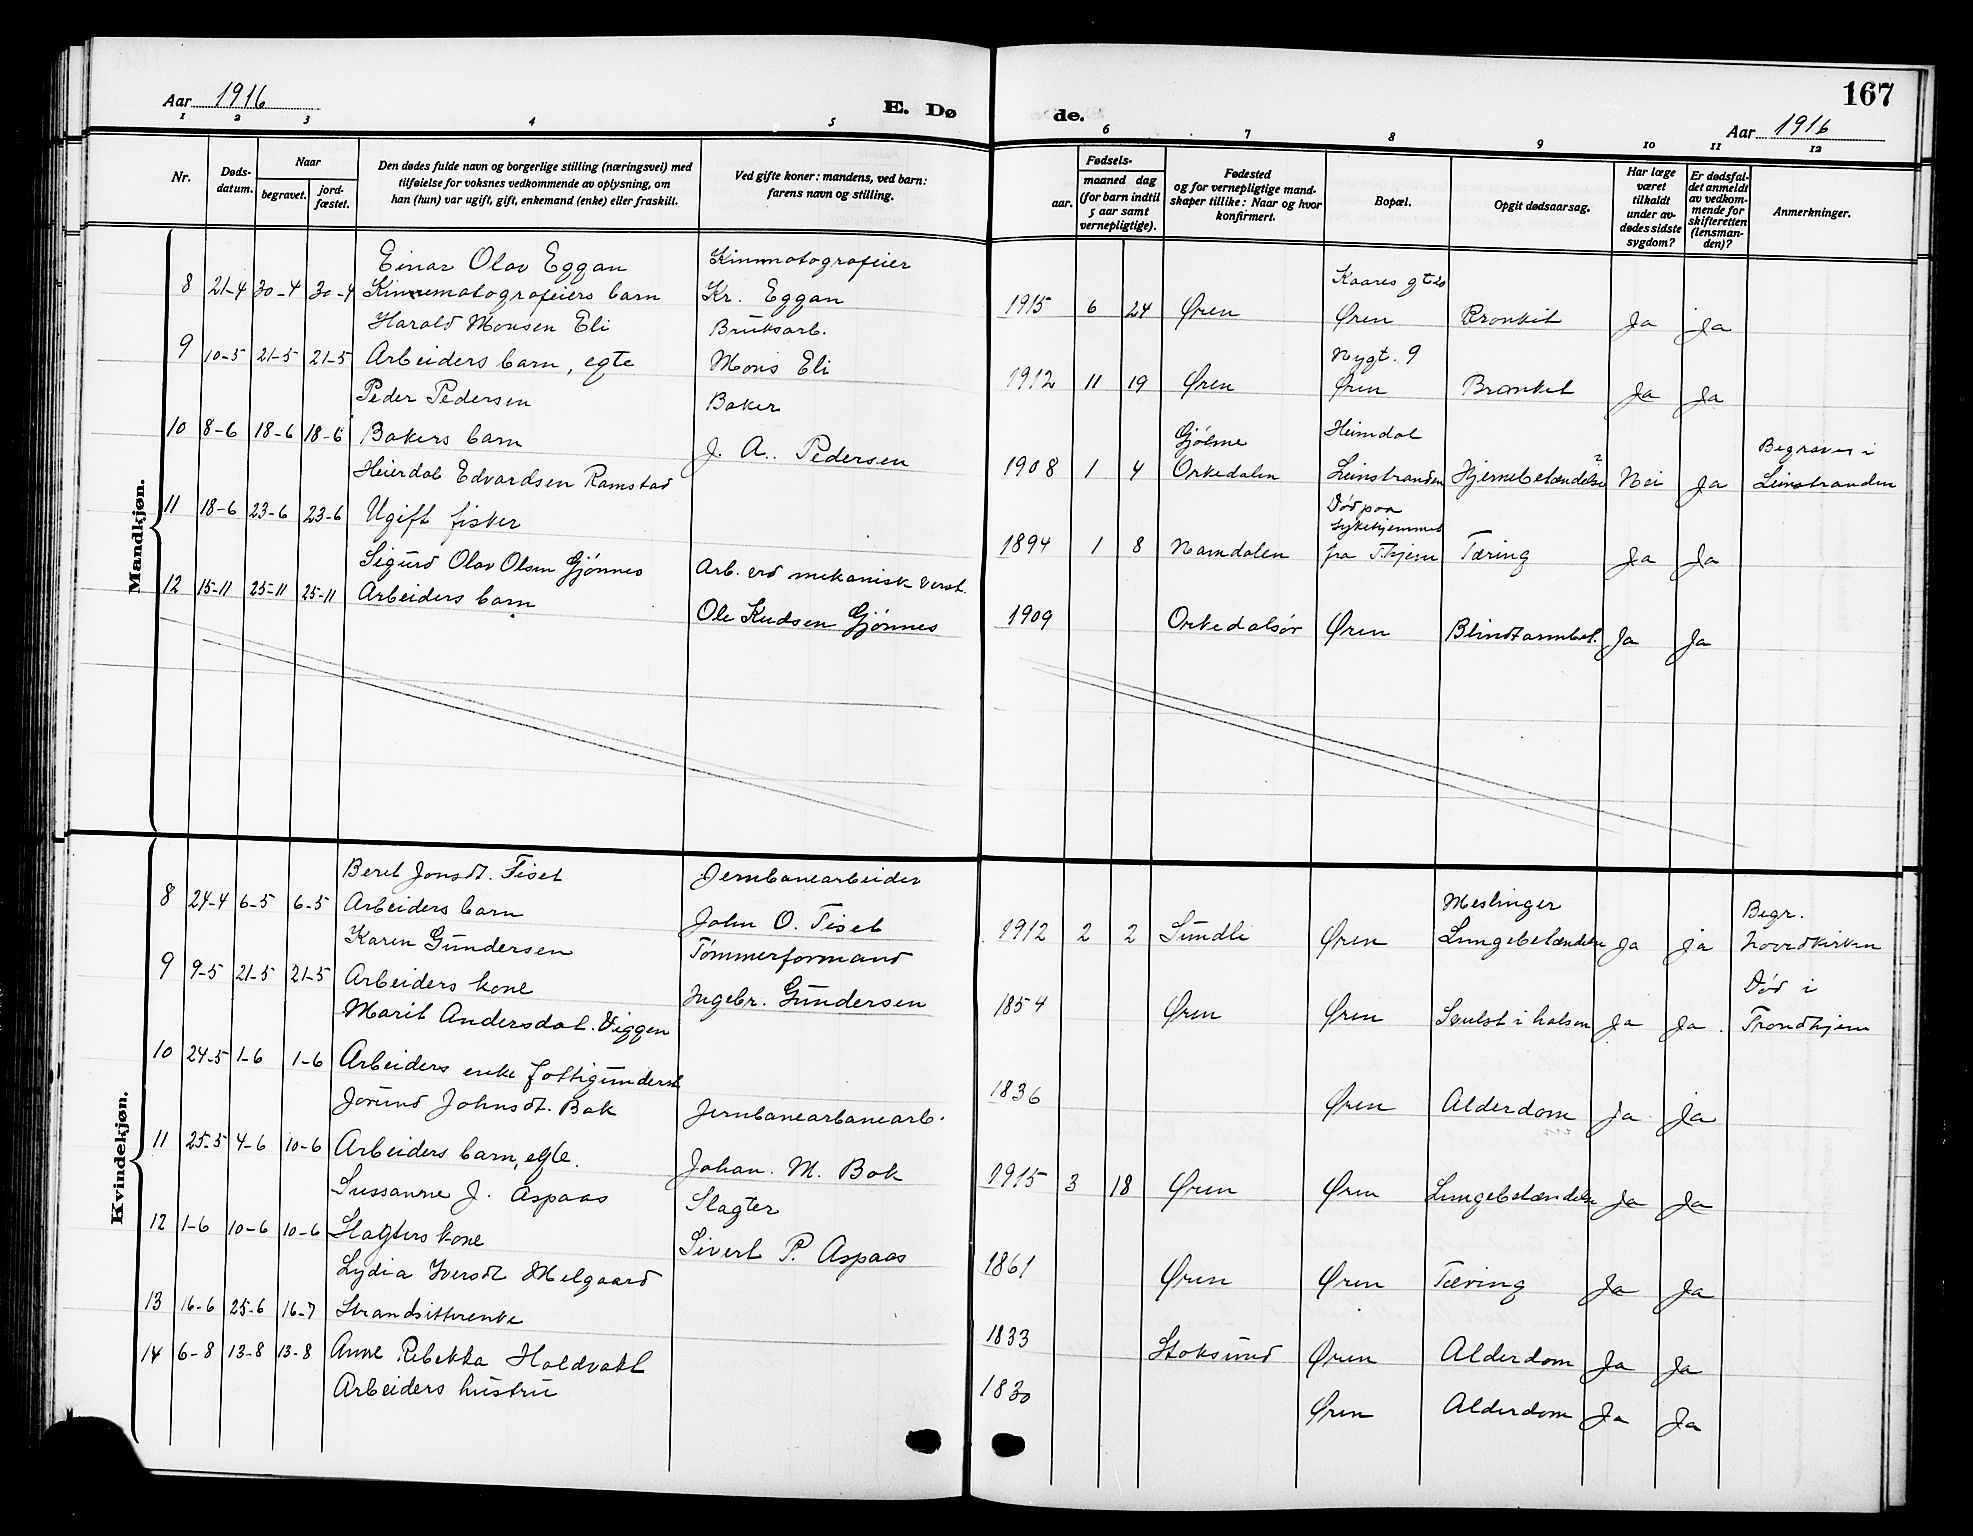 Aar 1916
E. Dø
de.
167
Aar 1916
1 2 3 4 5 6 7 8 9 10 11 12
Nr.
Døds-
datum.
Naar
begravet.
jord-
fæstet.
Den dødes fulde navn og borgerlige stilling (næringsvei) med
tilføielse for voksnes vedkommende av oplysning, om
han (hun) var ugift, gift, enkemand (enke) eller fraskilt.
Ved gifte koner: mandens, ved barn:
farens navn og stilling.
Fødsels-
aar.
maaned dag
(for barn indtil
5 aar samt
vernepligtige).
Fødested
og for vernepligtige mand-
skaper tillike: Naar og hvor
konfirmert.
Bopæl.
Opgit dødsaarsag.
Har læge
været
tilkaldt
under av-
dødes sidste
sygdom?
Er dødsfal-
det anmeldt
av vedkom-
mende for
skifteretten
(lensman-
den)?
Anmerkninger.
Mandkjøn.
Einar Olav Eggan Kinmatografeier Kaares gtds
8 21-4 30-4 30-4 Kinematografeiers barn Kr. Eggan 1915 6 24 Øren Øren Bronkit Ja Ja
Harald Monsen Eli Bruksarb. Nygt. 9
9 10-5 21-5 21-5 Arbeiders barn, egte Mons Eli 1912 11 19 Øren Øren Bronkit Ja Ja
Peder Pedersen Baker Gjølme Heimdal Begraves i
10 8-6 18-6 18-6 Bakers barn J. A. Pedersen 1908 1 4 Orkedalen Leinstranden Hjernebetændelse ? Nei Ja Leinstranden
Heierdal Edvardsen Ramstad Død paa
sykehjemmet
11 18-6 23-6 23-6 Ugift fisker 1894 1 8 Namdalen fra Thjem Tæring Ja Ja
Sigurd Olav Olsen Gjønnes Arb. ved mekanisk verst.
12 15-11 25-11 25-11 Arbeiders barn Ole Kudsen Gjønnes 1909 Orkedalsør Øren Blindtarmbet. Ja Ja
Kvindekjøn.
Beret Jonsdt. Fiset Jernbanearbeider Meslinger Begr.
8 24-4 6-5 6-5 Arbeiders barn John O. Fiset 1912 2 2 Sundli Øren Lungebetændelse Ja Ja hovedkirken
Karen Gundersen Tømmerformand Død i
9 9-5 21-5 21-5 Arbeiders kone Ingebr. Gundersen 1854 Øren Øren Svulst i halsen Ja Ja Trondhjem
Marit Andersdat. Viggen
10 24-5 1-6 1-6 Arbeiders enke fattigunderst 1836 Øren Alderdom Ja Ja
Jorund Johnsdt. Bak Jernbanearbanearb.
11 25-5 4-6 10-6 Arbeiders barn, egte. Johan. M. Bak 1915 3 18 Øren Øren Lungebetændelse Ja Ja
Sussanne J. Aspaas Slagter
12 1-6 10-6 10-6 Slagters kone Sivert P. Aspaas 1861 Øren Øren Tæring Ja Ja
Lydia Iversdt Melgaard
13 16-6 25-6 16-7 Strandsitterenke 1833 Stoksund Øren Alderdom Ja Ja
14 6-8 13-8 13-8 Anne Rebekka Holdvakt 1830 Øren Alderdom Ja Ja
Arbeiders hustru